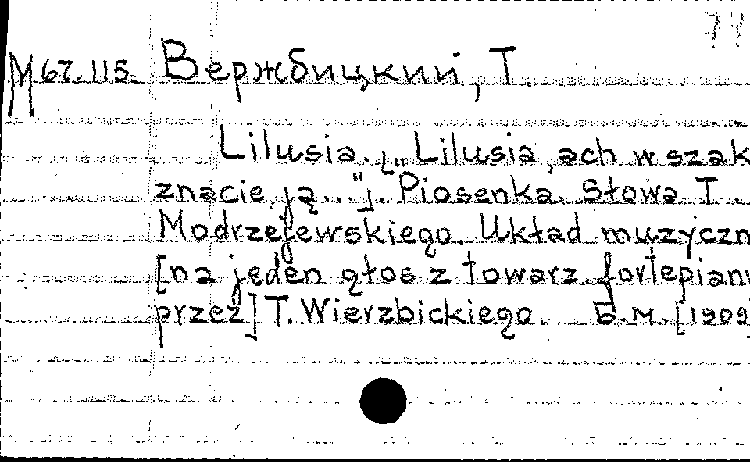 М 67.115. Вержбицкий, Т.
Lilusia. [„Lilusia, ach wszak
znacie ją..."]. Piosenka. Słowa T.
Modrzejewskiego. Układ muzyczn
[na jeden głos z towarz. fortepianu
przez] T. Wierzbickiego. Б.м. [1909